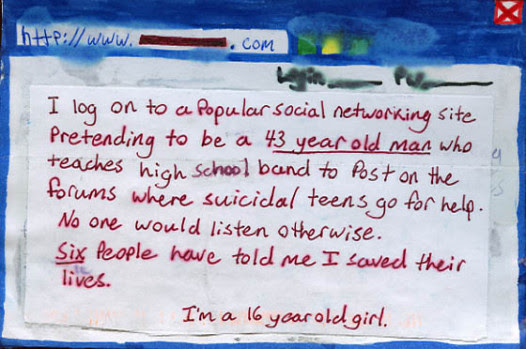 http://www. .com
Login
I log on to a Popular social networking site
Pretending to be a 43 year old man who
teaches high school band to Post on the
forums where suicidal teens go for help.
No one would listen otherwise.
Six People have told me I saved their
lives.
I'm a 16 year old girl.